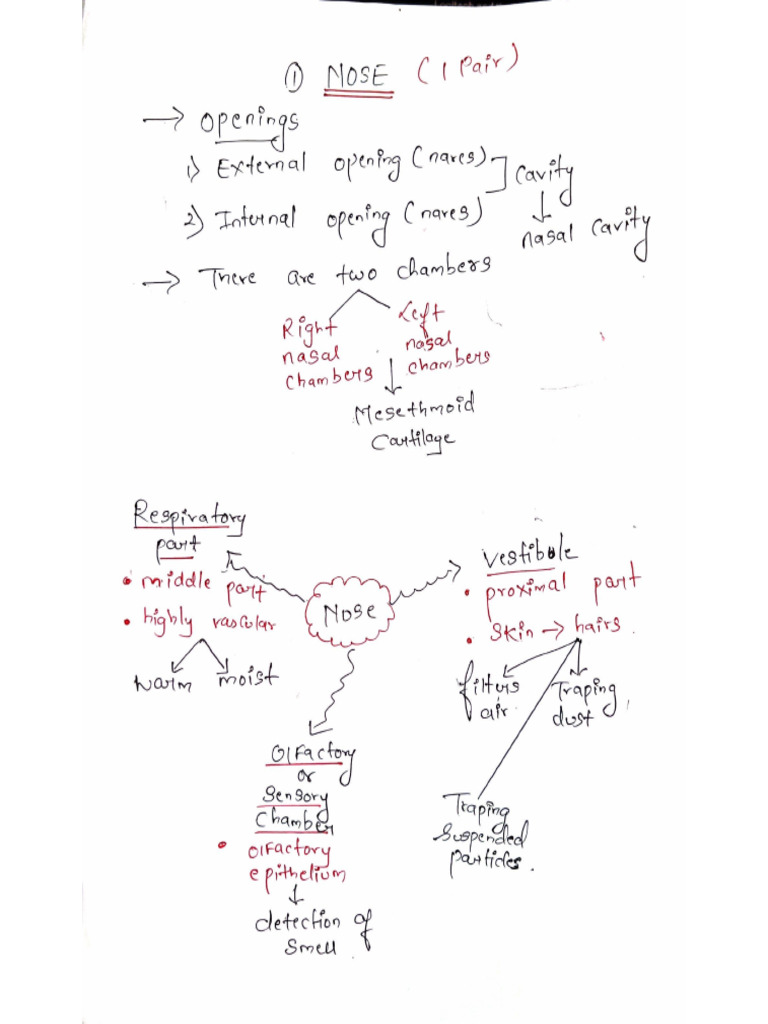 ① NOSE (1 Pair)
→ Openings
1) External opening (nares)
2) Internal opening (nares)
] Cavity
↓
nasal cavity
→ There are two chambers
Right
nasal
chambers
Left
nasal
chambers
↓
Mesethmoid
Cartilage
Respiratory
part
• middle part
• highly vascular
warm moist
Nose
Vestibule
• proximal part
• Skin → hairs
filters
air
Traping
dust
Traping
suspended
particles.
Olfactory
or
Sensory
Chamber
• Olfactory
epithelium
↓
detection of
smell.